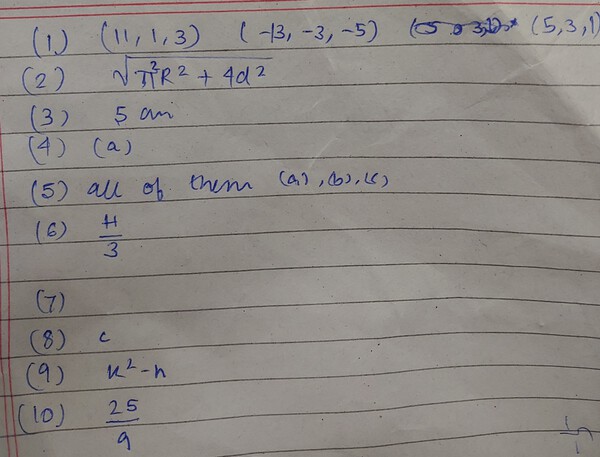 (1) (11, 1, 3) (-13, -3, -5) (5, 3, 1)
(2) √π²R² + 4d²
(3) 5 cm
(4) (a)
(5) all of them (a), (b), (c)
(6) H/3
(7)
(8) c
(9) n²-n
(10) 25/9